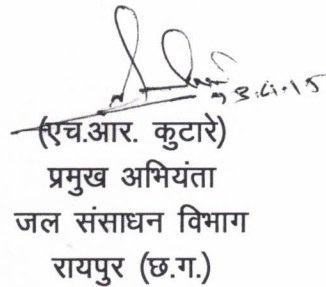 3.4.15
(एच.आर. कुटारे)
प्रमुख अभियंता
जल संसाधन विभाग
रायपुर (छ.ग.)